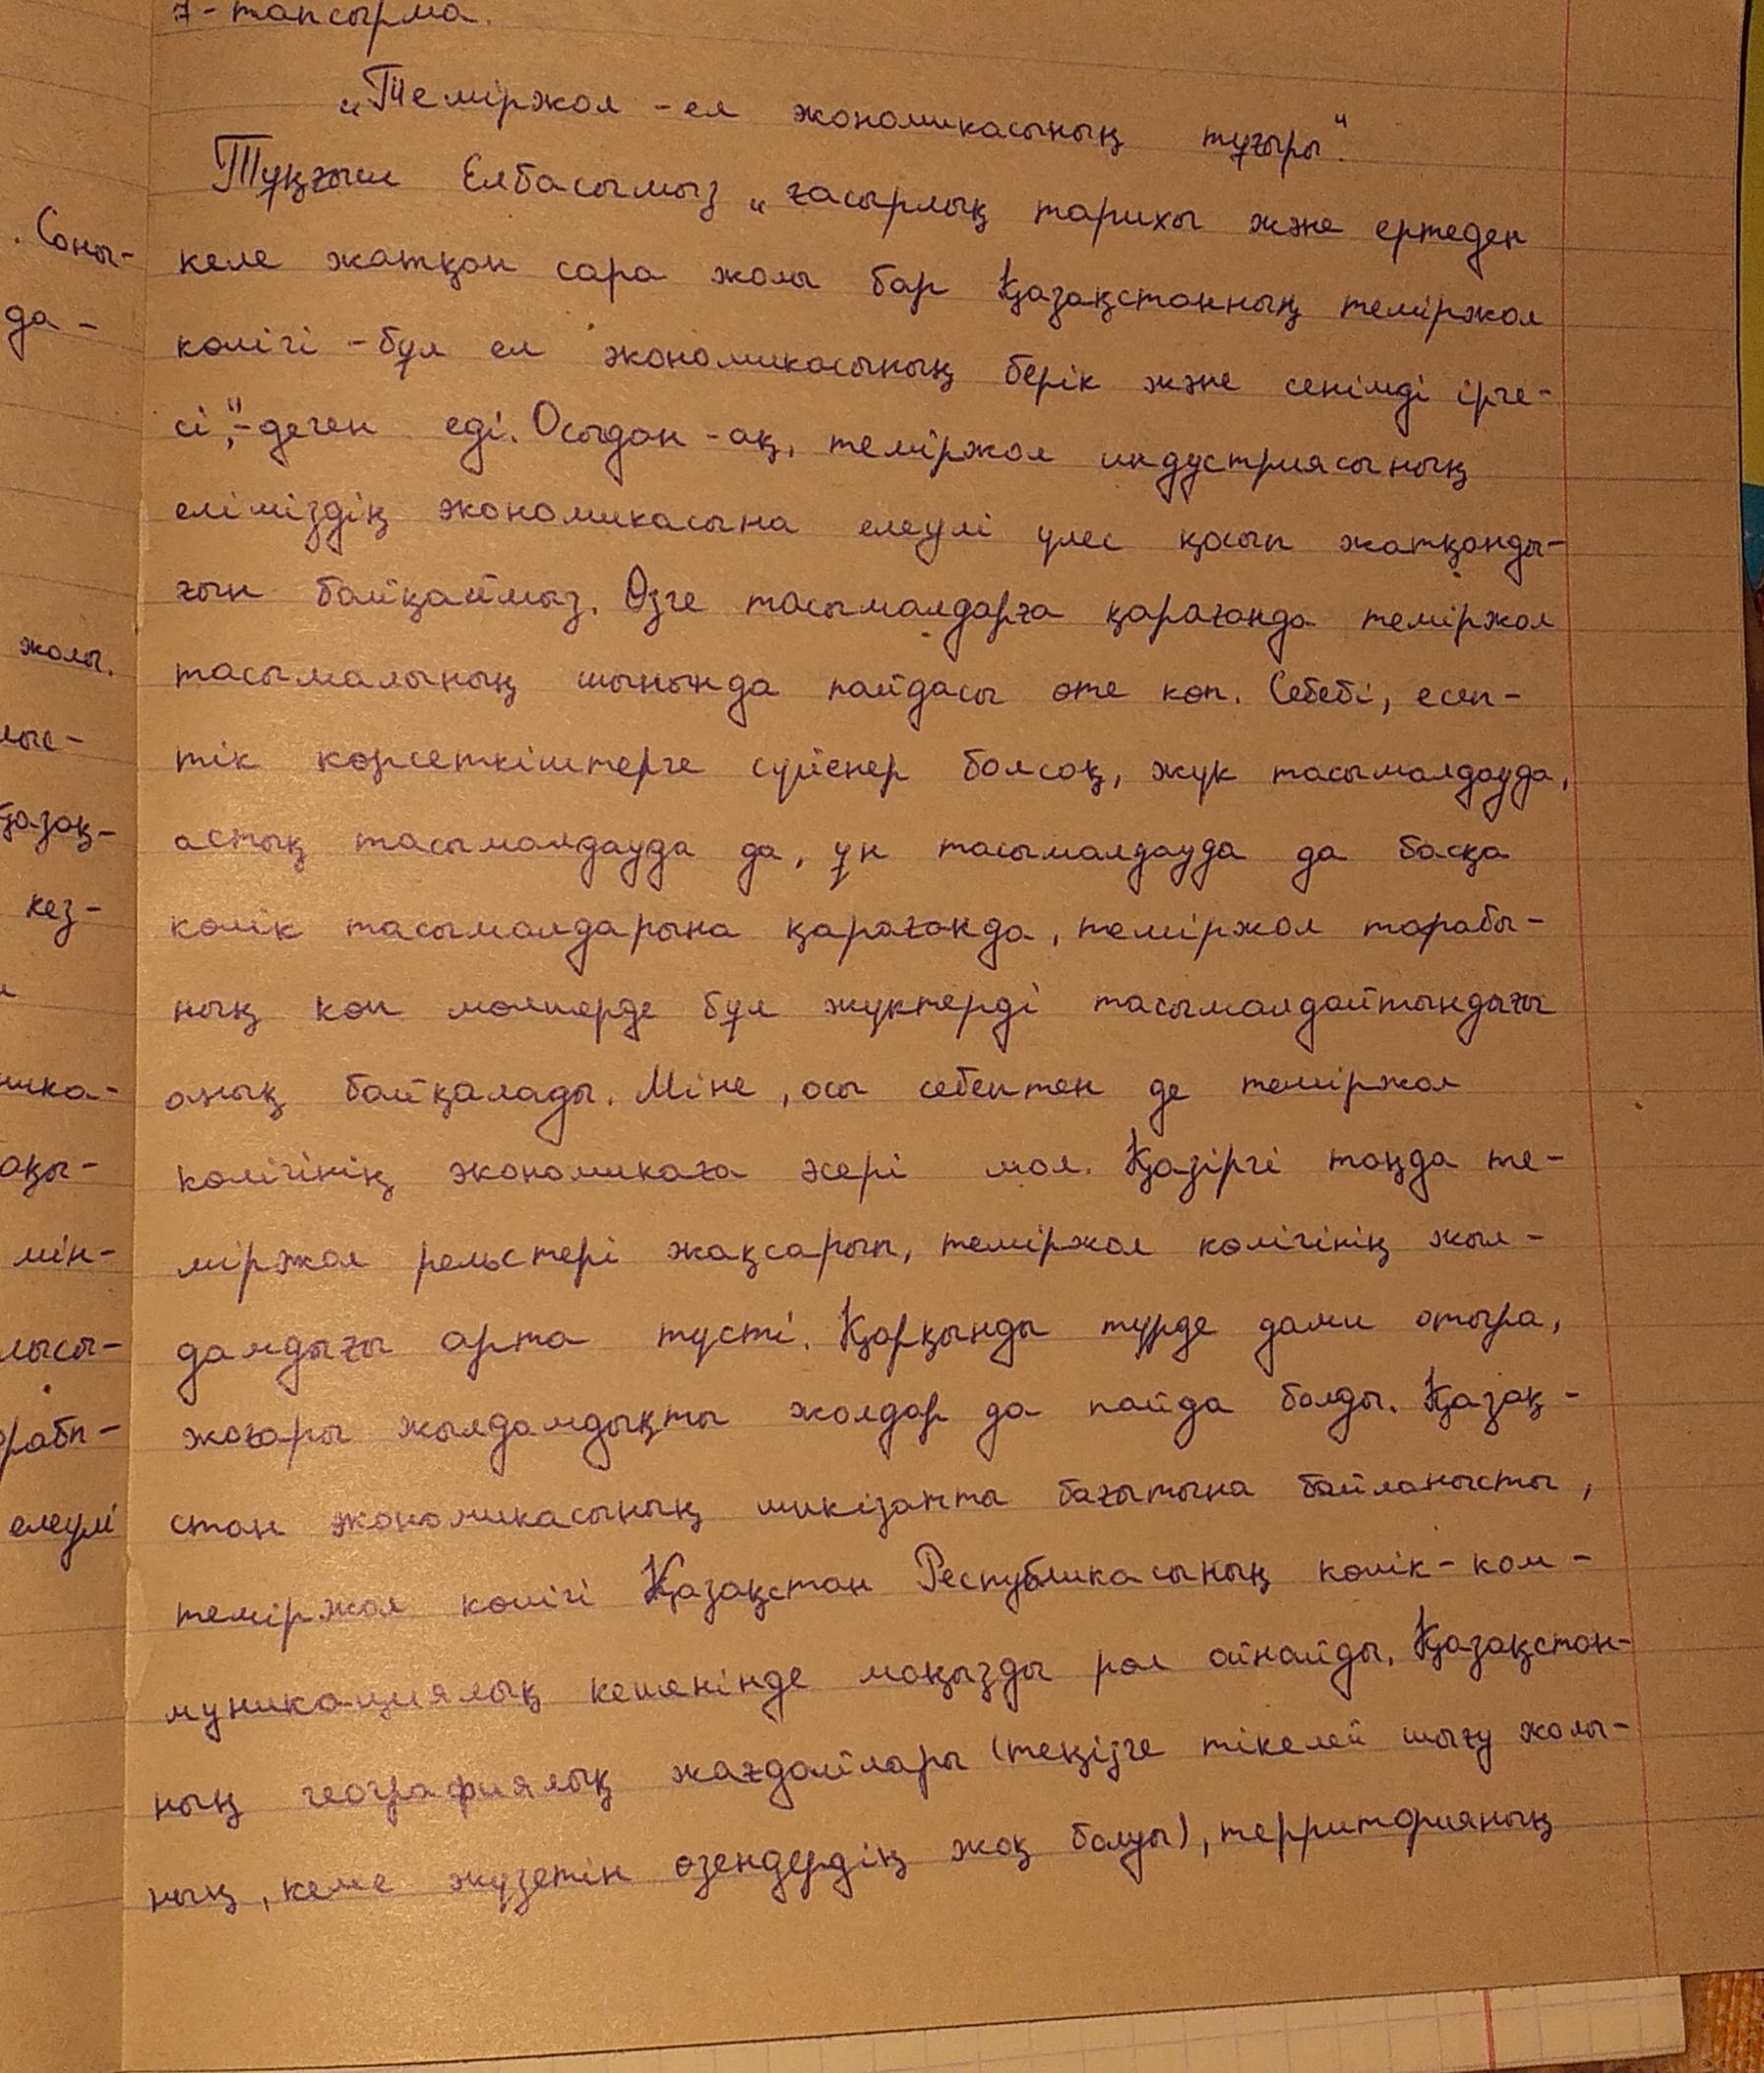 7-тапсырма.
„Теміржол - ел экономикасының тұғыры".
Тұңғыш Елбасымыз „ғасырлық тарихы және ертеден
келе жатқан сара жолы бар Қазақстанның теміржол
көлігі - бұл ел экономикасының берік және сенімді ірге-
сі",-деген еді. Осыдан-ақ, теміржол индустриясының
еліміздің экономикасына елеулі үлес қосып жатқанды-
ғын байқаймыз. Өзге тасымалдарға қарағанда теміржол
тасымалының шынында пайдасы өте көп. Себебі, есеп-
тік көрсеткіштерге сүйенер болсақ, жүк тасымалдауда,
астық тасымалдауда да, ұн тасымалдауда да басқа
көлік тасымалдарына қарағанда, теміржол тарабы-
ның көп мөлшерде бұл жүктерді тасымалдайтындығы
анық байқалады. Міне, осы себептен де теміржол
көлігінің экономикаға жері мол. Қазіргі таңда те-
міржол рельстері жақсарып, теміржол көлігінің жыл-
дамдығы арта түсті. Қарқынды түрде дами отыра,
жоғары жылдамдықты жолдар да пайда болды. Қазақ-
стан экономикасының шикізатты бағытына байланысты,
теміржол көлігі Қазақстан Республикасының көлік-ком-
муникациялық кешенінде маңызды рөл ойнайды. Қазақстан-
ның географиялық жағдайлары (теңізге тікелей шығу жолы-
ның, кеме жүзетін өзендердің жоқ болуы), территорияның
. Соны-
да-
жолы.
лыс-
Қазақ-
кез-
ника-
ақы-
мін-
лысы-
елеулі